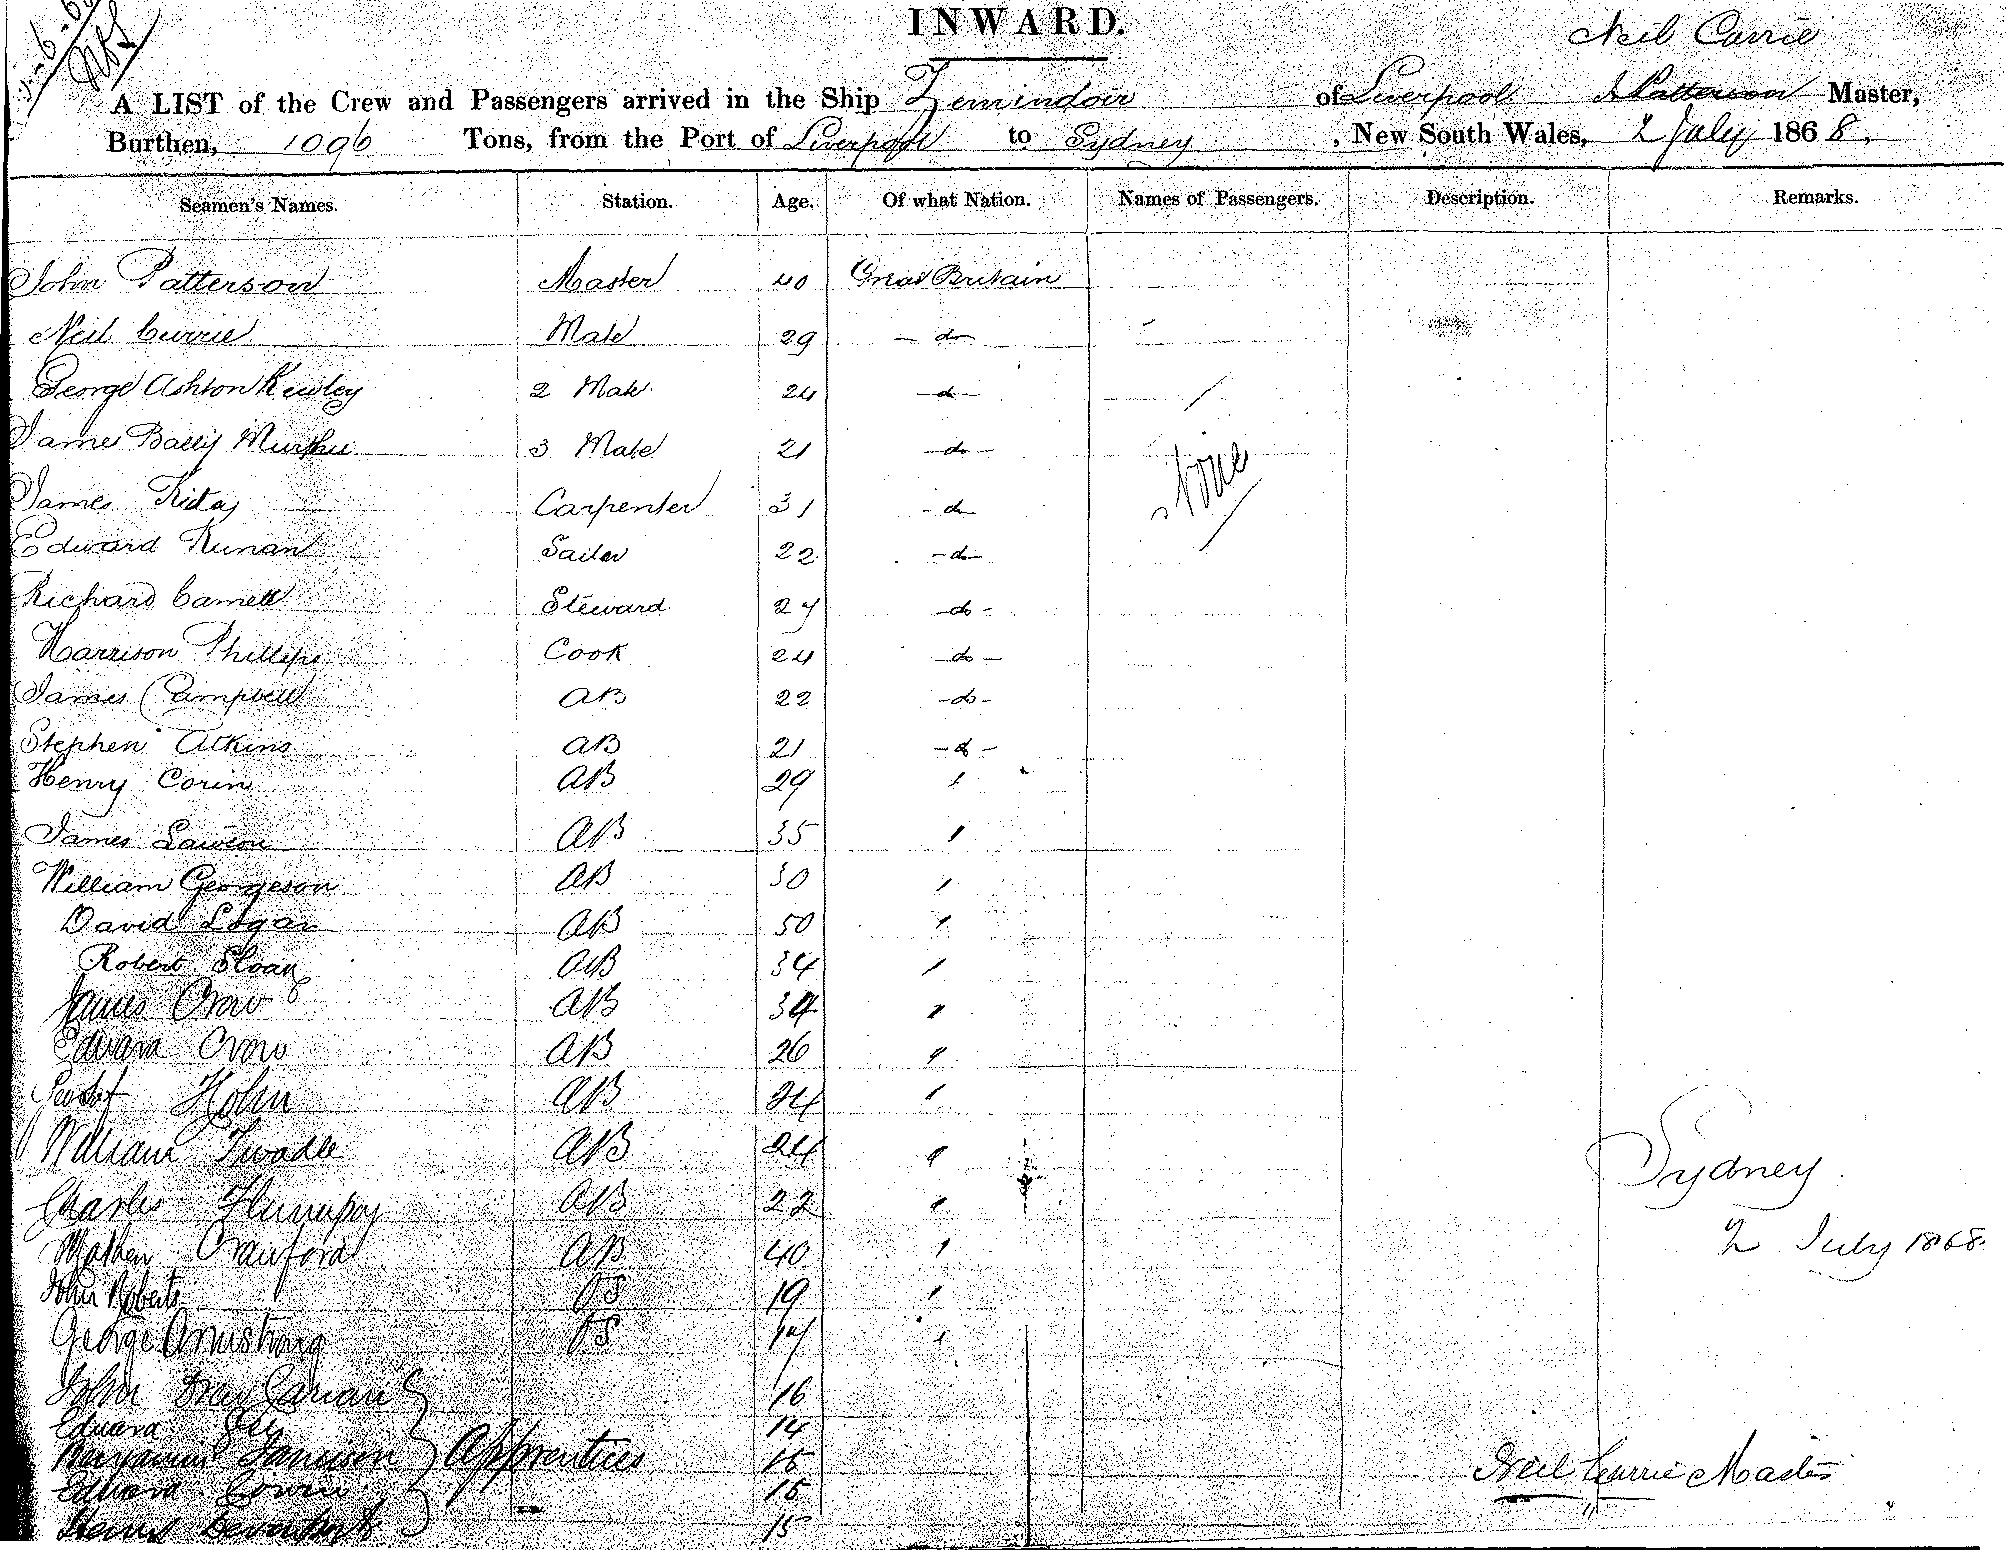 INWARD.
Neil Currie
A LIST of the Crew and Passengers arrived in the Ship Zemindar of Liverpool J Patterson Master,
Burthen, 1096 Tons, from the Port of Liverpool to Sydney, New South Wales, 2 July 1868.
Seamen's Names. Station. Age. Of what Nation. Names of Passengers. Description. Remarks.
John Patterson Master 40 Great Britain
Neil Currie Mate 29 - do
George Ashton Kewley 2 Mate 24 - do -
James Murphy 3 Mate 21 - do -
James 31 Carpenter - do
Edward 22 Sailor - do -
Richard 27 Steward - do -
Harrison Phillips Cook 24 - do -
James Campbell AB 22 - do -
Stephen Atkins AB 21 - do -
Henry Corin AB 29 "
James Lawson AB 35 "
William Georgeson AB 30 "
David Logan AB 50 "
Robert Sloan AB 34 "
James Crow AB 34 "
Edward Crow AB 26 "
AB 24 "
William Twadle AB 24 "
Charles AB 22 "
Crawford AB 40 "
John Roberts OS 19 "
George Armstrong OS 17 "
John 16
Edward 14
Benjamin Apprentices 15
Edward 15
15
None
Sydney
2 July 1868
Neil Currie Master